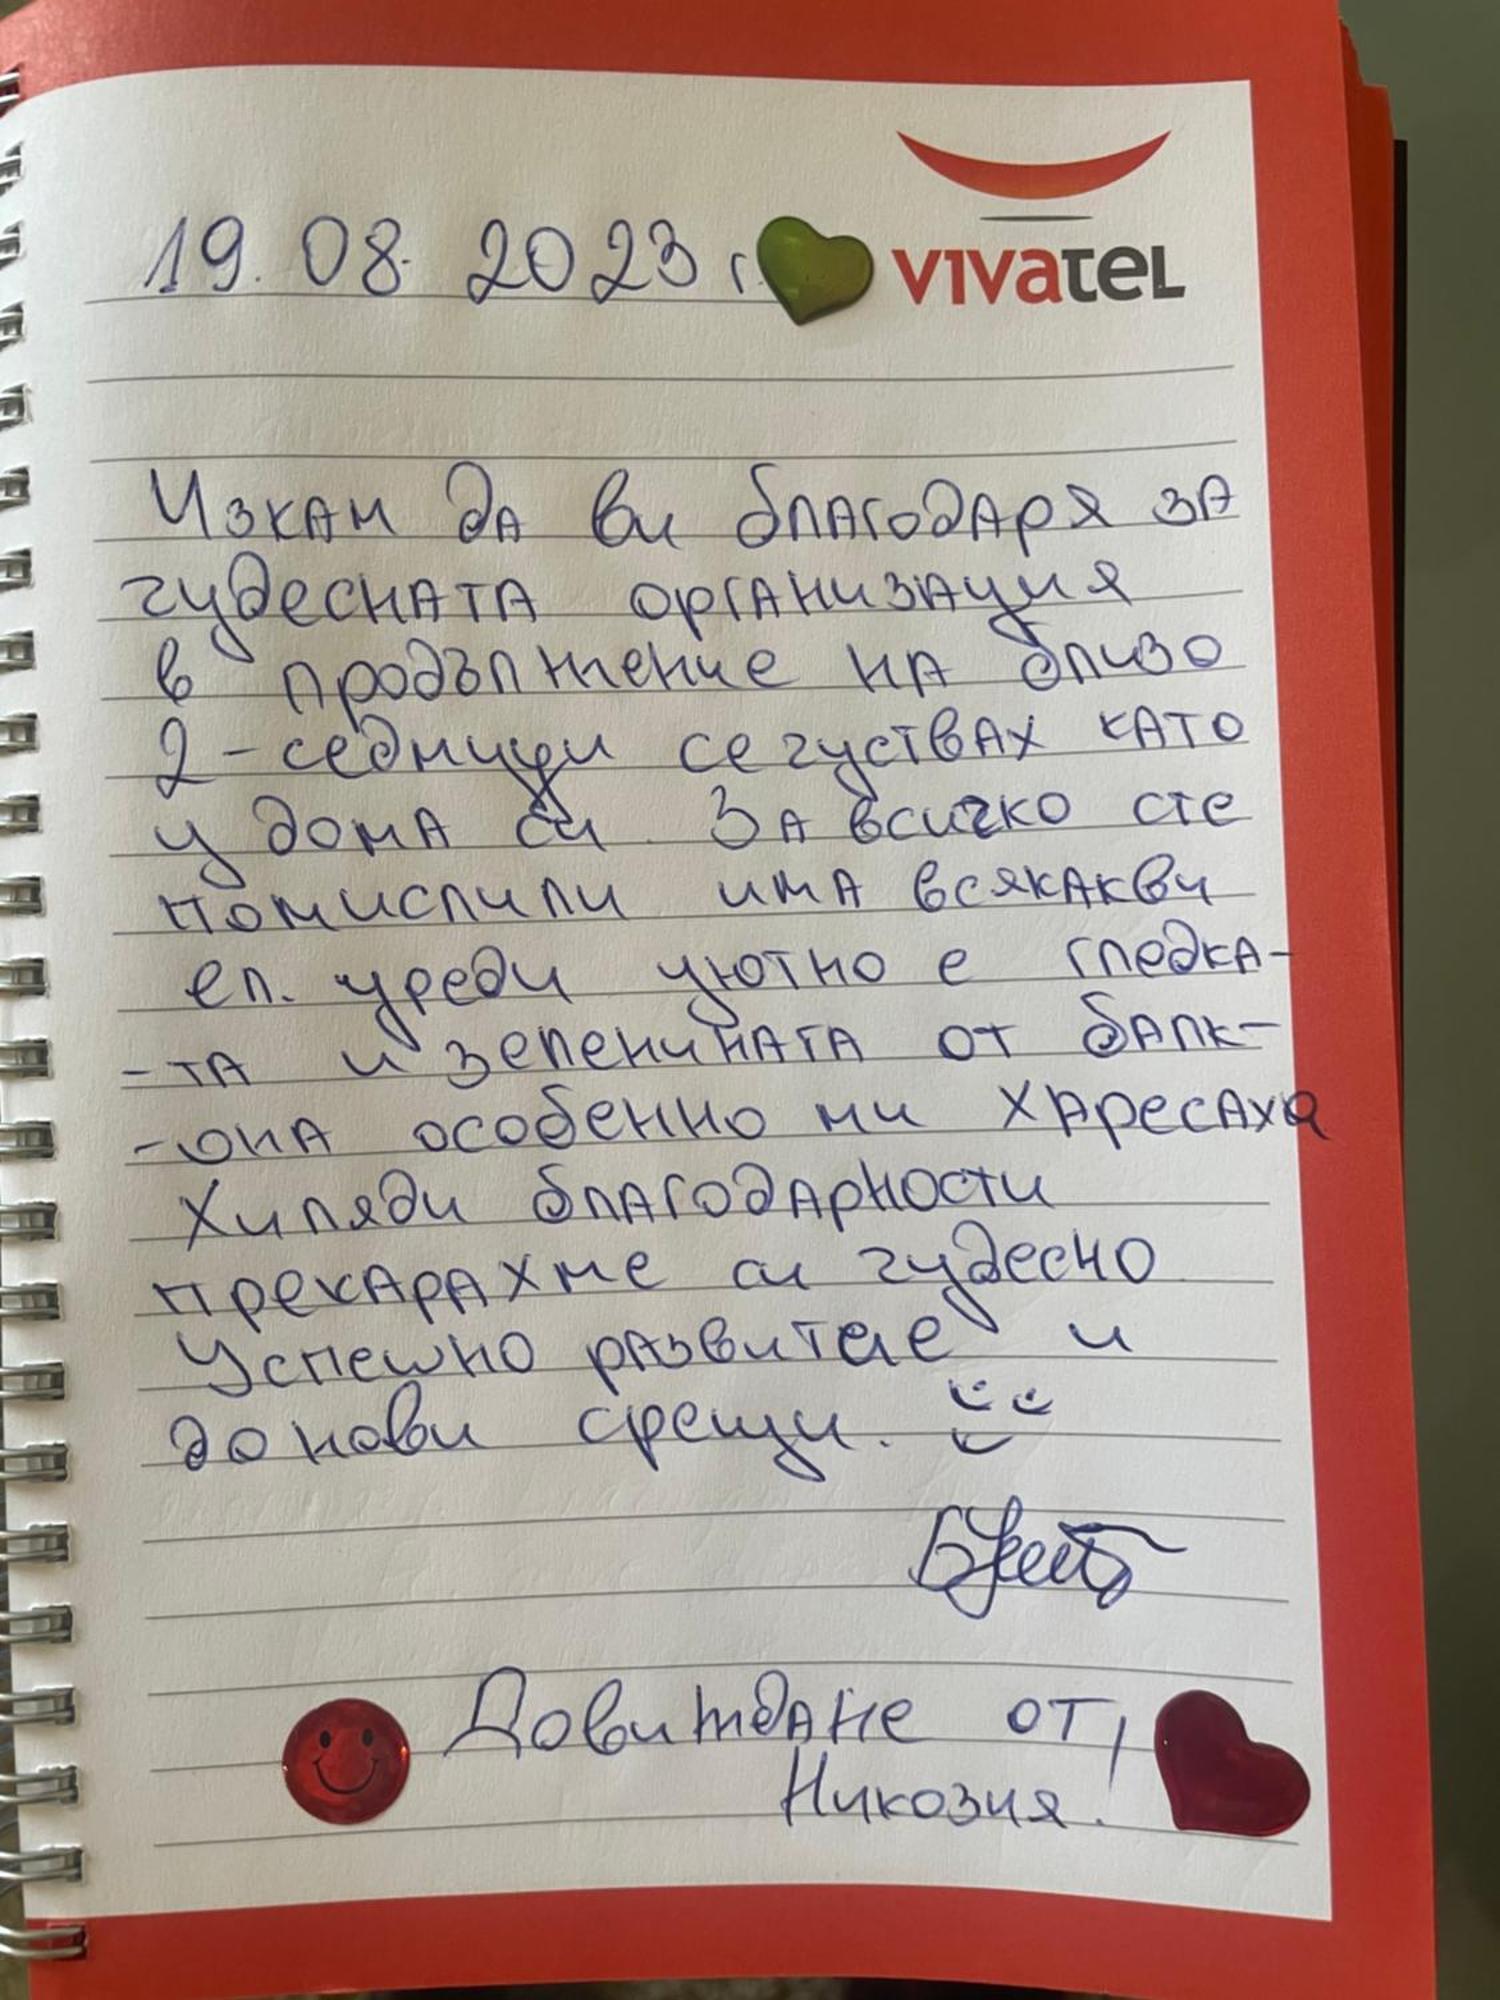 19.08.2023 г.
vivatel
Изкам да ви благодаря за
чудесната организация
в продължение на близо
2-седмици се чуствах като
у дома си. За всичко сте
помислили има всякакви
ел. уреди уютно е гледка-
-та и зеленината от балк-
-она особенно ми харесаха
Хиляди благодарности
прекарахме си чудесно
Успешно развитие и
до нови срещи.
Довиждане от
Никозия!